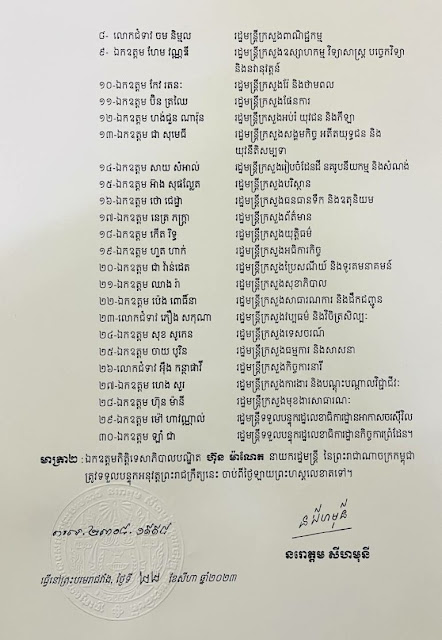 ៨- លោកជំទាវ ចម និម្មល រដ្ឋមន្ត្រីក្រសួងពាណិជ្ជកម្ម
៩- ឯកឧត្តម ហែម វណ្ណឌី រដ្ឋមន្ត្រីក្រសួងឧស្សាហកម្ម វិទ្យាសាស្ត្រ បច្ចេកវិទ្យា
និងនវានុវត្តន៍
១០-ឯកឧត្តម កែវ រតនៈ រដ្ឋមន្ត្រីក្រសួងរ៉ែ និងថាមពល
១១-ឯកឧត្តម ប៊ិន ត្រឈៃ រដ្ឋមន្ត្រីក្រសួងផែនការ
១២-ឯកឧត្តម ហង់ជួន ណារ៉ុន រដ្ឋមន្ត្រីក្រសួងអប់រំ យុវជន និងកីឡា
១៣-ឯកឧត្តម ជា សុមេធី រដ្ឋមន្ត្រីក្រសួងសង្គមកិច្ច អតីតយុទ្ធជន និង
យុវនីតិសម្បទា
១៤-ឯកឧត្តម សាយ សំអាល់ រដ្ឋមន្ត្រីក្រសួងរៀបចំដែនដី នគរូបនីយកម្ម និងសំណង់
១៥-ឯកឧត្តម អ៊ាង សុផល្លែត រដ្ឋមន្ត្រីក្រសួងបរិស្ថាន
១៦-ឯកឧត្តម ថោ ជេដ្ឋា រដ្ឋមន្ត្រីក្រសួងធនធានទឹក និងឧតុនិយម
១៧-ឯកឧត្តម នេត្រ ភក្ត្រា រដ្ឋមន្ត្រីក្រសួងព័ត៌មាន
១៨-ឯកឧត្តម កើត រិទ្ធ រដ្ឋមន្ត្រីក្រសួងយុត្តិធម៌
១៩-ឯកឧត្តម ហួត ហាក់ រដ្ឋមន្ត្រីក្រសួងអធិការកិច្ច
២០-ឯកឧត្តម ជា វ៉ាន់ដេត រដ្ឋមន្ត្រីក្រសួងប្រៃសណីយ៍ និងទូរគមនាគមន៍
២១-ឯកឧត្តម ឈាង រ៉ា រដ្ឋមន្ត្រីក្រសួងសុខាភិបាល
២២-ឯកឧត្តម ប៉េង ពោធិ៍នា រដ្ឋមន្ត្រីក្រសួងសាធារណការ និងដឹកជញ្ជូន
២៣-លោកជំទាវ ភឿង សកុណា រដ្ឋមន្ត្រីក្រសួងវប្បធម៌ និងវិចិត្រសិល្បៈ
២៤-ឯកឧត្តម សុខ សូកេន រដ្ឋមន្ត្រីក្រសួងទេសចរណ៍
២៥-ឯកឧត្តម ចាយ បូរិន រដ្ឋមន្ត្រីក្រសួងធម្មការ និងសាសនា
២៦-លោកជំទាវ អ៊ឹង កន្ថាផាវី រដ្ឋមន្ត្រីក្រសួងកិច្ចការនារី
២៧-ឯកឧត្តម ហេង សួរ រដ្ឋមន្ត្រីក្រសួងការងារ និងបណ្តុះបណ្តាលវិជ្ជាជីវៈ
២៨-ឯកឧត្តម ហ៊ុន ម៉ានី រដ្ឋមន្ត្រីក្រសួងមុខងារសាធារណៈ
២៩-ឯកឧត្តម ម៉ៅ ហាវណ្ណាល់ រដ្ឋមន្ត្រីទទួលបន្ទុករដ្ឋលេខាធិការដ្ឋានអាកាសចរស៊ីវិល
៣០-ឯកឧត្តម ឡាំ ជា រដ្ឋមន្ត្រីទទួលបន្ទុករដ្ឋលេខាធិការដ្ឋានកិច្ចការព្រំដែន។
មាត្រា២ : ឯកឧត្តមកិត្តិទេសាភិបាលបណ្ឌិត ហ៊ុន ម៉ាណែត នាយករដ្ឋមន្ត្រី នៃព្រះរាជាណាចក្រកម្ពុជា
ត្រូវទទួលបន្ទុកអនុវត្តព្រះរាជក្រឹត្យនេះ ចាប់ពីថ្ងៃឡាយព្រះហស្តលេខាតទៅ។
នរោត្តម សីហមុនី
ធ្វើនៅព្រះបរមរាជវាំង, ថ្ងៃទី ២២ ខែសីហា ឆ្នាំ២០២៣